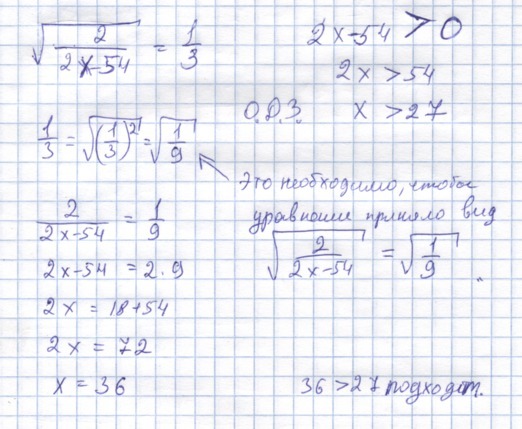 √(2/(2x-54)) = 1/3
2x-54 > 0
2x > 54
О.Д.З. x > 27
1/3 = √((1/3)²) = √(1/9)
Это необходимо, чтобы
уравнение приняло вид
√(2/(2x-54)) = √(1/9).
2/(2x-54) = 1/9
2x-54 = 2·9
2x = 18+54
2x = 72
x = 36
36 > 27 подходит.